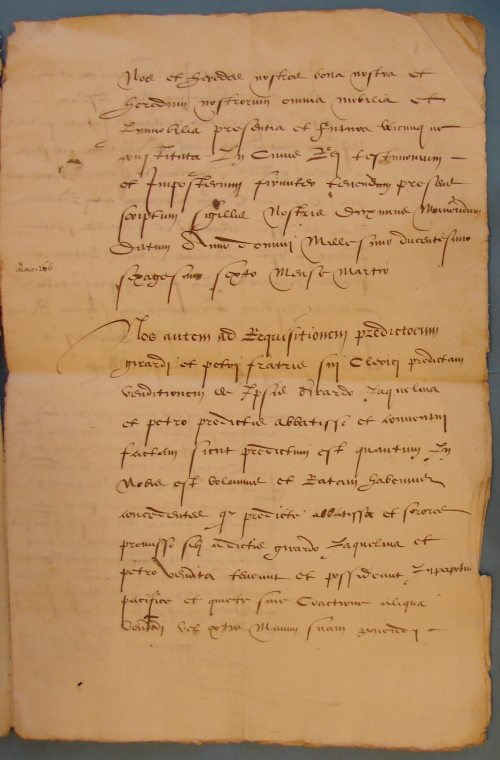 Nos et heredes nostros bona nostra et
heredum nostrorum omnia mobilia et
Immobilia presentia et futura
constituta In Cuius Rei testimonium
et Imposterum firmiter tenendum presens
scriptum sigillis Nostris duximus
datum Anno domini Millesimo ducentesimo
sexagesimo sexto Mense Martio
Nos autem ad Requisitionem predictorum
girardi et petri fratris sui Clerici predictam
venditionem de Ipsis Girardo Jaquelina
et petro predictis abbatisse et conventui
factam sicut predictum est quantum In
Nobis est volumus et Ratam habemus
concedentes qz predicte abbatissa et sorores
premissa sibi a dictis girardo Jaquelina et
petro vendita teneant et possideant Inperpetuum
pacifice et quiete sine Coactione aliqua
vendendi vel extra Manum suam ponendi